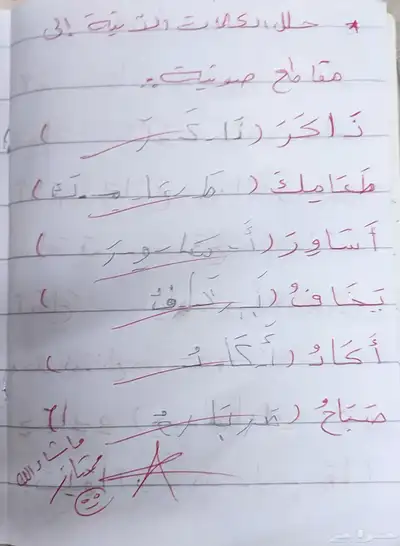 * حلل الكلمات الآتية إلى
مقاطع صوتية ..
ذَاكَرَ ( ذَا كَـ رَ )
طَعَامِكَ ( طَـ عَا مِـ كَ )
أَسَاوِرَ ( أَ سَا وِ رَ )
يَخَافُ ( يَـ خَا فُ )
أَكَادُ ( أَ كَا دُ )
صَبَاحُ ( صَـ بَا حُ )
ما شاء الله
ممتاز